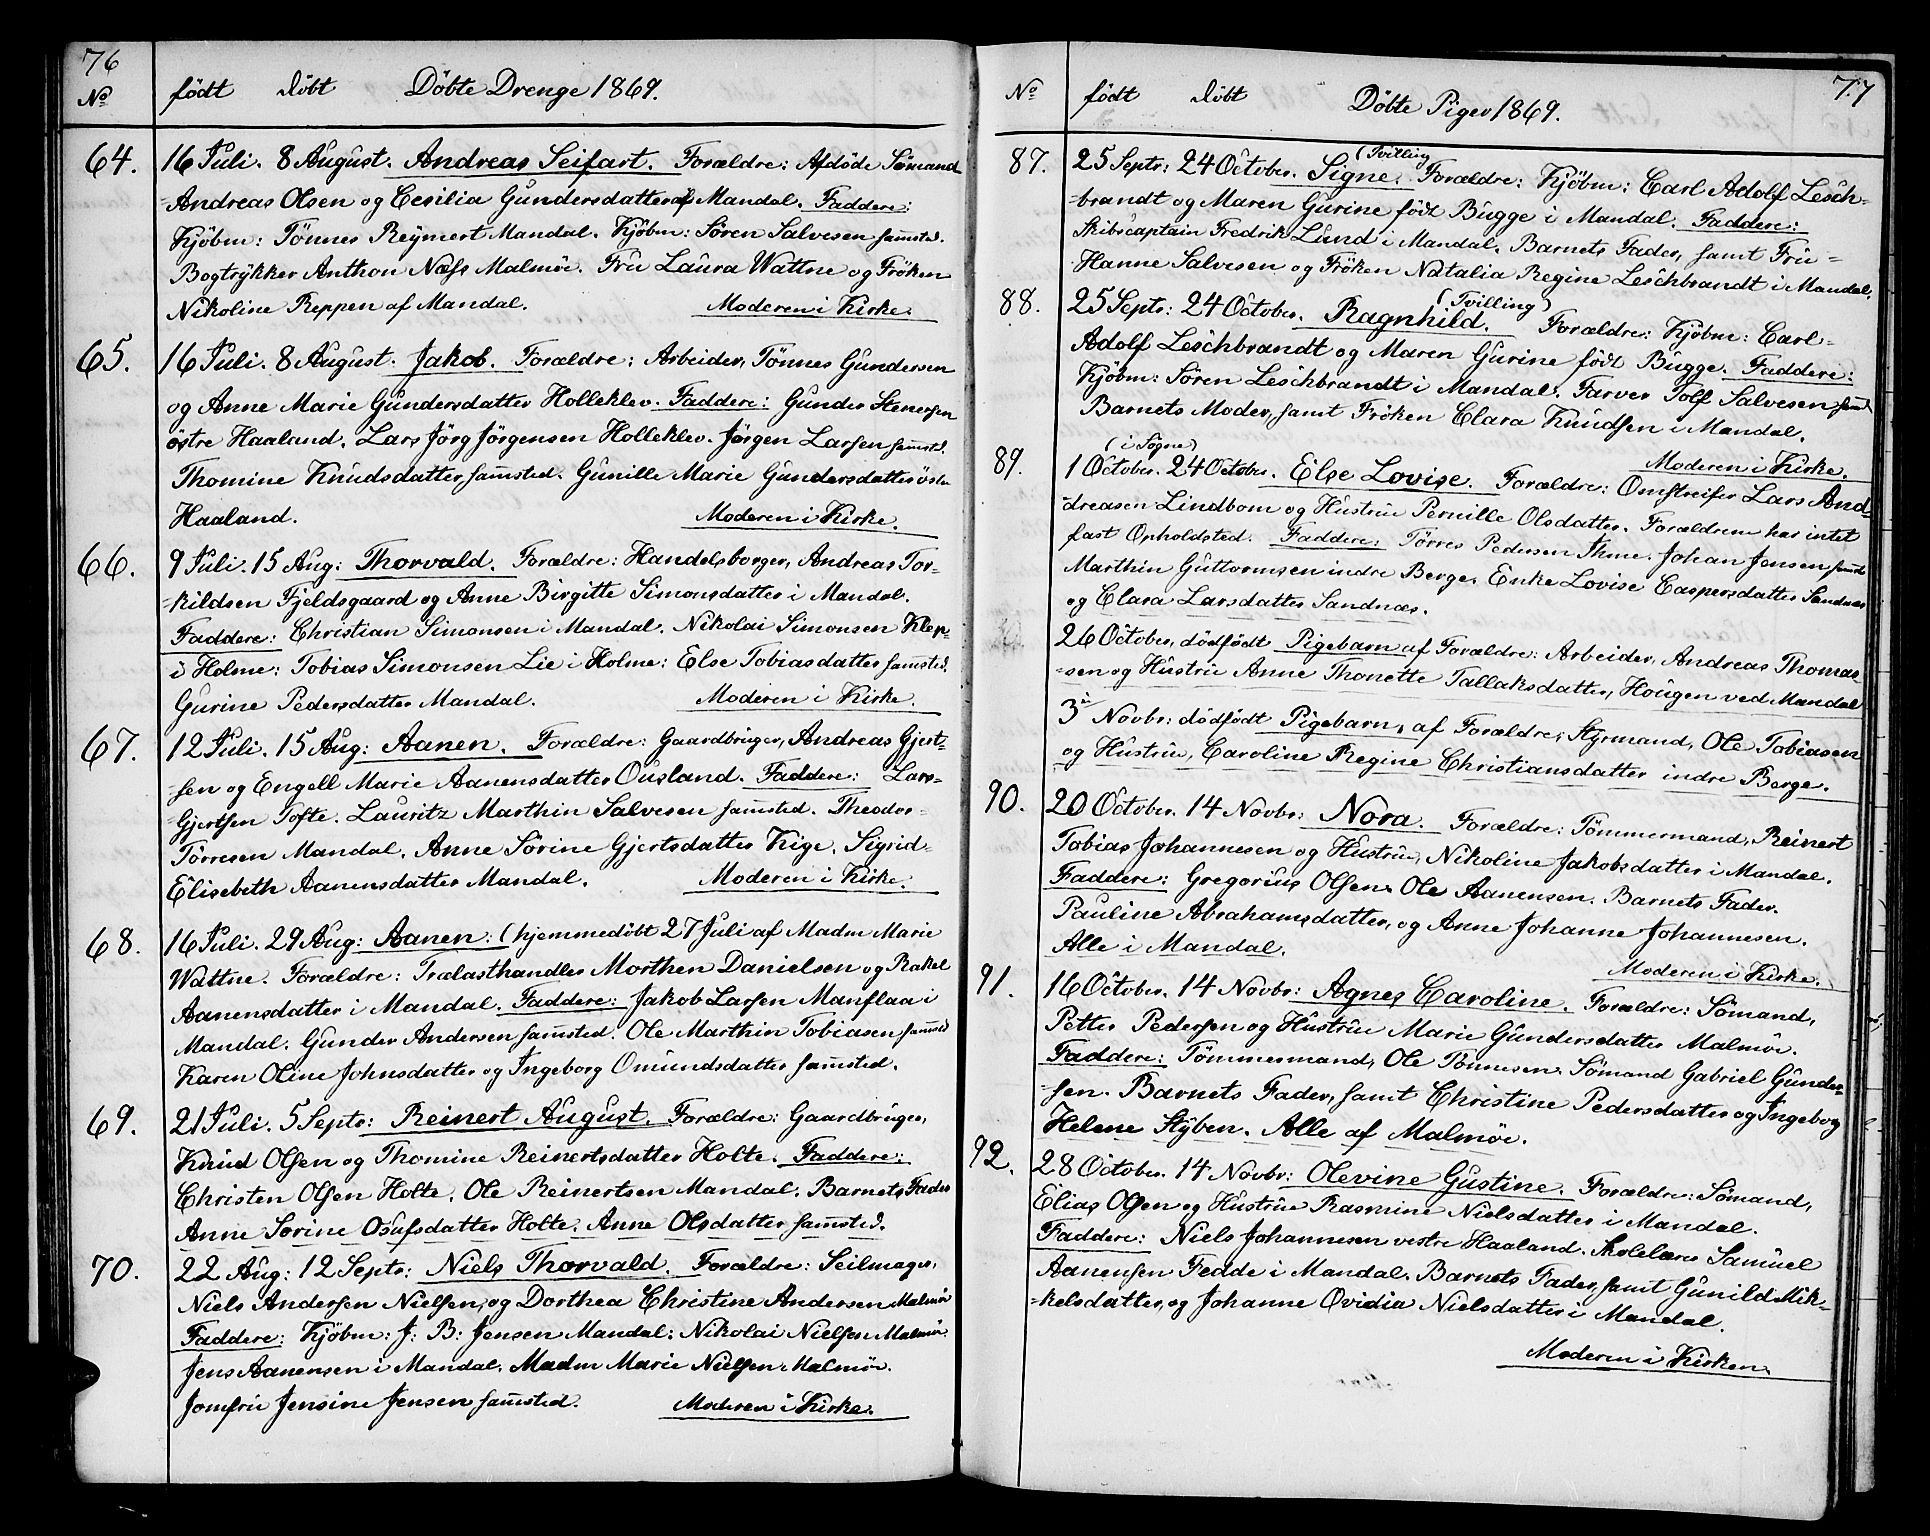 76
No födt döbt Döbte Drenge 1869.
64. 16 Juli. 8 August. Andreas Seifart. Forældre: Afdöde Sömand
Andreas Olsen og Cecilia Gundersdatter af Mandal. Faddere:
Kjöbm: Tönnes Reymert Mandal. Kjöbm: Sören Salvesen samsted.
Bogtrykker Anthon Næss Malmöe. Fru Laura Wattne og Fröken
Nikoline Reppen af Mandal. Moderen i Kirke.
65. 16 Juli. 8 August. Jakob. Forældre: Arbeider, Tönnes Gundersen
og Anne Marie Gundersdatter Holleklev. Faddere: Gunder Stenersen
östre Haaland. Lars Jörg Jörgensen Holleklev. Jörgen Larsen samsted.
Thomine Knudsdatter samsted. Gunille Marie Gundersdatter östre
Haaland. Moderen i Kirke.
66. 9 Juli. 15 Aug: Thorvald. Forældre: Handelsborger, Andreas Tor-
-kildsen Fjeldsgaard og Anne Birgitte Simonsdatter i Mandal.
Faddere: Christian Simonsen i Mandal. Nikolai Simonsen Klep-
i Holme: Tobias Simonsen Lie i Holme: Else Tobiasdatter samsted.
Gurine Pedersdatter Mandal. Moderen i Kirke.
67. 12 Juli. 15 Aug: Aanen. Forældre: Gaardbruger, Andreas Gjert-
-sen og Engell Marie Aanensdatter Ousland. Faddere: Lars-
-Gjertsen Tofte. Lauritz Marthin Salvesen samsted. Theodor-
-Törresen Mandal. Anne Sörine Gjertsdatter Kige. Sigrid-
Elisebeth Aanensdatter Mandal. Moderen i Kirke.
68. 16 Juli. 29 Aug: Aanen: (hjemmedöbt 27 Juli af Madm Marie
Wattne. Forældre: Trælasthandler Morthen Danielsen og Rakel
Aanensdatter i Mandal. Faddere: Jakob Larsen Manflaa i
Mandal. Gunder Andersen samsted. Ole Marthin Tobiasen samsted
Karen Oline Johnsdatter og Ingeborg Omundsdatter samsted.
69. 21 Juli. 5 Septr: Reinert August. Forældre: Gaardbruger,
Knud Olsen og Thomine Reinertsdatter Holte. Faddere:
Christen Olsen Holte. Ole Reinertsen Mandal. Barnets Fader
Anne Sorine Osufsdatter Holte. Anne Olsdatter samsted.
70. 22 Aug: 12 Septr: Niels Thorvald. Forældre: Seilmager,
Niels Andersen Nielsen, og Dorthea Christine Andersen Malmöe
Faddere: Kjöbm: J: B: Jensen Mandal: Nikolai Nielsen Malmöe.
Jens Aanensen i Mandal. Madm Marie Nielsen Malmöe.
Jomfru Jensine Jensen samsted. Moderen i Kirke.
77
No födt döbt Döbte Piger 1869.
87. 25 Septr: 24 October. Signe. (Tvilling Forældre: Kjöbm: Carl Adolf Lesch-
-brandt og Maren Gurine födt Bugge i Mandal. Faddere:
Skibscaptain Fredrik Lund i Mandal. Barnets Fader, samt Fru-
Hanne Salvesen og Fröken Natalia Regine Leschbrandt i Mandal.
88. 25 Septr: 24 October. Ragnhild. (Tvilling) Forældre: Kjöbm: Carl-
Adolf Leschbrandt og Maren Gurine födt Bugge. Faddere:
Kjöbm: Sören Leschbrandt i Mandal. Farver Tolf Salvesen samst
Barnets Moder, samt Fröken Clara Knudsen i Mandal.
(i Sogne) Moderen i Kirke.
89. 1 October. 24 October. Else Lovise. Forældre: Omstreifer Lars And-
-dreasen Lindbom og Hustru Pernille Olsdatter. Forældrene har intet
fast Opholdsted. Faddere: Törres Pedersen Ihme. Johan Jensen samst
Marthin Guttormsen indre Berge. Enke Lovise Caspersdatter Sandnæs
og Clara Larsdatter Sandnæs.
26 October, dödfödt Pigebarn af Forældre: Arbeider, Andreas Thomas-
-sen og Hustru Anne Thonette Tallaksdatter, Hougen ved Mandal
3die Novbr: dödfödt Pigebarn, af Forældre: Styrmand, Ole Tobiasen
og Hustru, Caroline Regine Christiansdatter indre Berge.
90. 20 October. 14 Novbr: Nora. Forældre: Tömmermand, Reinert
Tobias Johannesen og Hustru, Nikoline Jakobsdatter i Mandal.
Faddere: Gregorius Olsen. Ole Aanensen. Barnets Fader.
Pauline Abrahamsdatter, og Anne Johanne Johannesen.
Alle i Mandal. Moderen i Kirke.
91. 16 October. 14 Novbr: Agnes Caroline. Forældre: Sömand,
Petter Pedersen og Hustru Marie Gundersdatter Malmöe.
Faddere: Tömmermand, Ole Tönnesen. Sömand Gabriel Gunder-
-sen. Barnets Fader, samt Christine Pedersdatter og Ingeborg
Helene Stüben. Alle af Malmöe.
92. 28 October. 14 Novbr: Olevine Gustine. Forældre: Sömand,
Elias Olsen og Hustru Rasmine Nielsdatter i Mandal.
Faddere: Niels Johannesen vestre Haaland. Skolelærer Samuel
Aanensen Fedde i Mandal. Barnets Fader, samt Gunild Mik-
-kelsdatter, og Johanne Ovidia Nielsdatter i Mandal.
Moderen i Kirken.